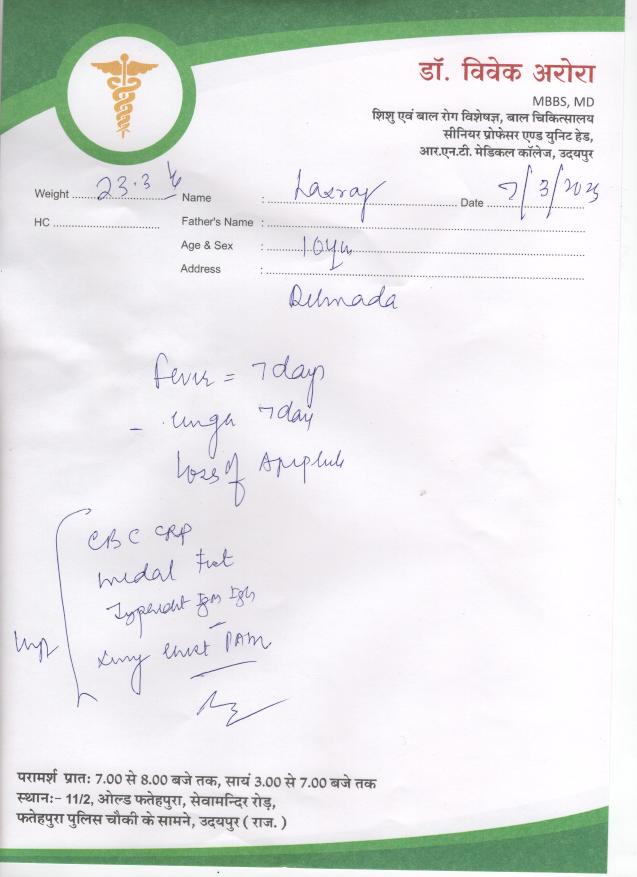 डॉ. विवेक अरोरा
MBBS, MD
शिशु एवं बाल रोग विशेषज्ञ, बाल चिकित्सालय
सीनियर प्रोफेसर एण्ड युनिट हेड,
आर.एन.टी. मेडिकल कॉलेज, उदयपुर
Weight 23.3 Name : Date 7/3/2025
HC Father's Name :
Age & Sex : 10yr
Address :
Delmada
Fever = 7 days
- 7 day
Loss of
CBC CRP
IgM IgG
chest PAM
परामर्श प्रातः 7.00 से 8.00 बजे तक, सायं 3.00 से 7.00 बजे तक
स्थानः- 11/2, ओल्ड फतेहपुरा, सेवामन्दिर रोड़,
फतेहपुरा पुलिस चौकी के सामने, उदयपुर ( राज. )